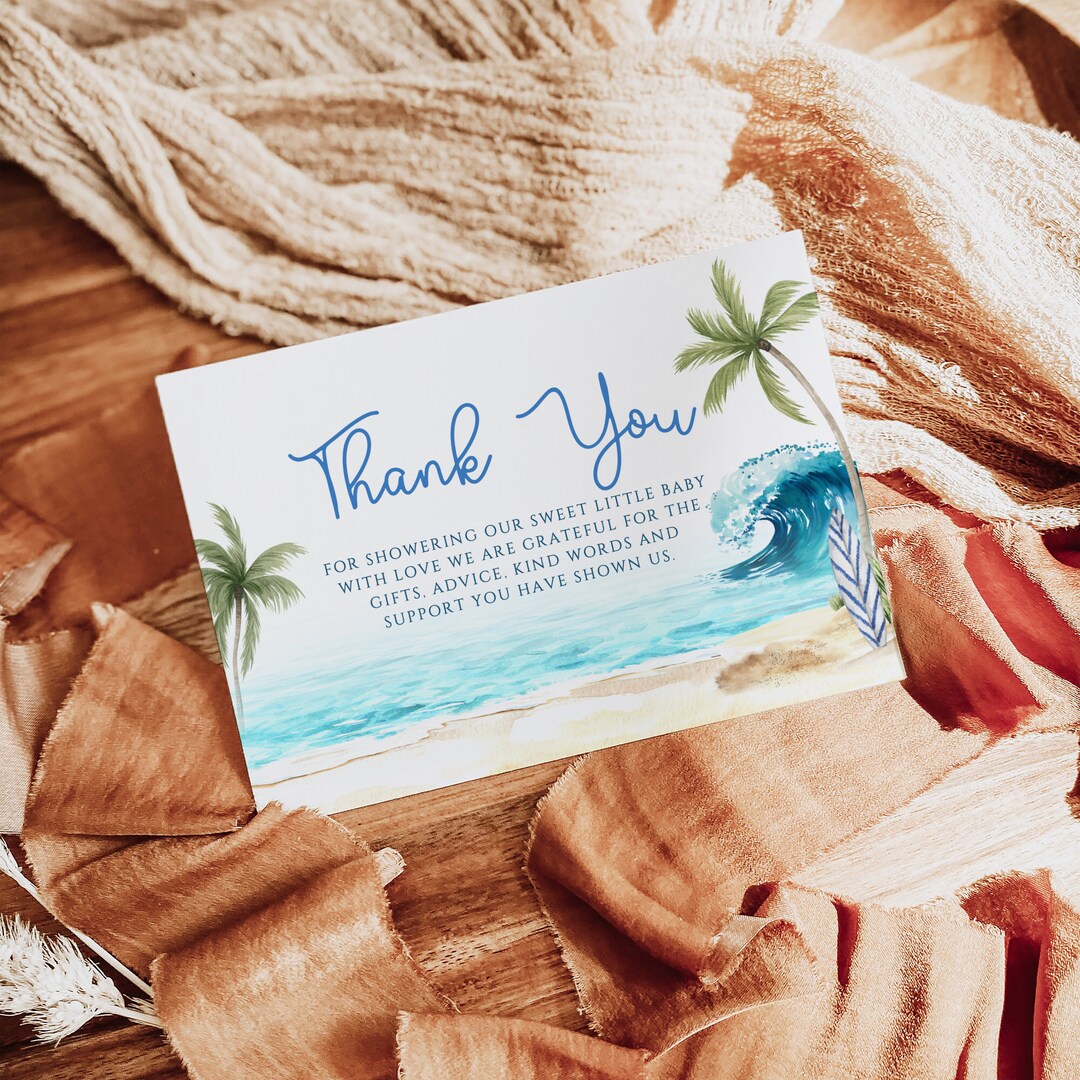 Thank You
FOR SHOWERING OUR SWEET LITTLE BABY
WITH LOVE WE ARE GRATEFUL FOR THE
GIFTS, ADVICE, KIND WORDS AND
SUPPORT YOU HAVE SHOWN US.